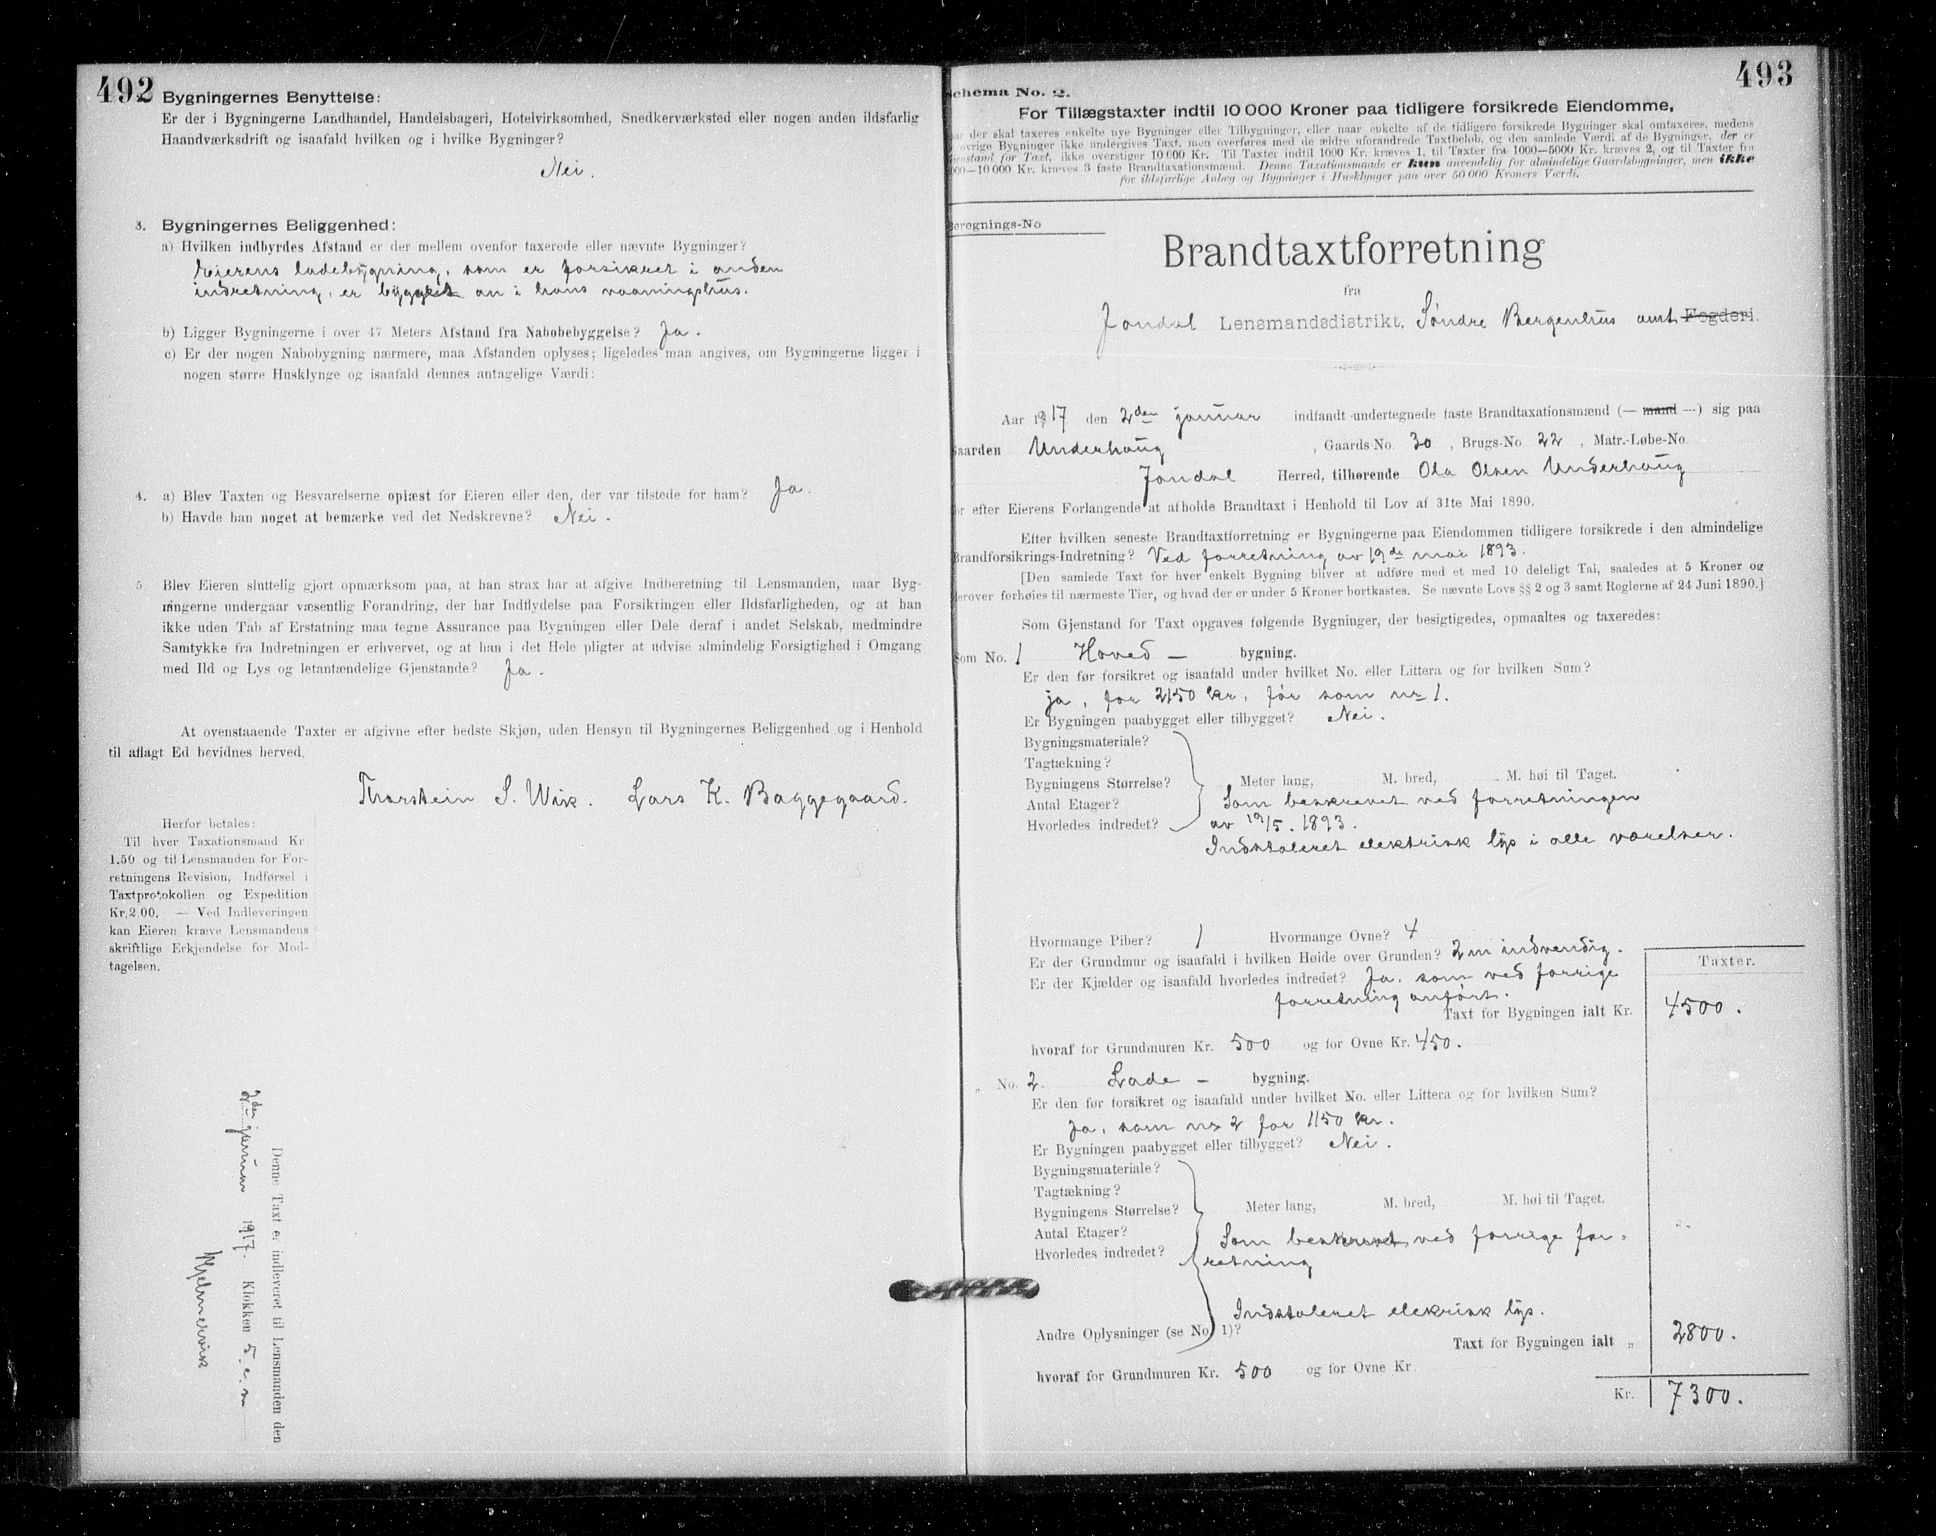 492
Bygningernes Benyttelse:
Er der i Bygningerne Landhandel, Handelsbageri, Hotelvirksomhed, Snedkerværksted eller nogen anden ildsfarlig
Haandværksdrift og isaafald hvilken og i hvilke Bygninger?
Nei.
3. Bygningernes Beliggenhed:
a) Hvilken indbyrdes Afstand er der mellem ovenfor taxerede eller nævnte Bygninger?
Eierens ladebygning, som er forsikret i anden
indretning, er bygget an i hans vaaningshus.
b) Ligger Bygningerne i over 47 Meters Afstand fra Nabobebyggelse? Ja.
c) Er der nogen Nabobygning nærmere, maa Afstanden oplyses; ligeledes maa angives, om Bygningerne ligger i
nogen større Husklynge og isaafald dennes antagelige Værdi:
4. a) Blev Taxten og Besvarelserne oplæst for Eieren eller den, der var tilstede for ham? Ja.
b) Havde han noget at bemærke ved det Nedskrevne? Nei.
5. Blev Eieren sluttelig gjort opmærksom paa, at han strax har at afgive Indberetning til Lensmanden, naar Byg-
ningerne undergaar væsentlig Forandring, der har Indflydelse paa Forsikringen eller Ildsfarligheden, og at han
ikke uden Tab af Erstatning maa tegne Assurance paa Bygningen eller Dele deraf i andet Selskab, medmindre
Samtykke fra Indretningen er erhvervet, og at han i det Hele pligter at udvise almindelig Forsigtighed i Omgang
med Ild og Lys og letantændelige Gjenstande? Ja.
At ovenstaaende Taxter er afgivne efter bedste Skjøn, uden Hensyn til Bygningernes Beliggenhed og i Henhold
til aflagt Ed bevidnes herved.
Thorstein S. Wik. Lars K. Baggegaard.
Herfor betales:
Til hver Taxationsmand Kr
1.50 og til Lensmanden for For-
retningens Revision, Indførsel i
Taxtprotokollen og Expedition
Kr. 2.00. — Ved Indleveringen
kan Eieren kræve Lensmandens
skriftlige Erkjendelse for Mod-
tagelsen.
Denne Taxt er indleveret til Lensmanden den
2den januar 1917. Klokken 5 e. m
Hjelmervik
493
Schema No. 2.
For Tillægstaxter indtil 10 000 Kroner paa tidligere forsikrede Eiendomme,
aar der skal taxeres enkelte nye Bygninger eller Tilbygninger, eller naar enkelte af de tidligere forsikrede Bygninger skal omtaxeres, medens
øvrige Bygninger ikke undergives Taxt, men overføres med de ældre uforandrede Taxtbeløb, og den samlede Værdi af de Bygninger, der er
Gjenstand for Taxt, ikke overstiger 10 000 Kr. Til Taxter indtil 1000 Kr. kræves 1, til Taxter fra 1000—5000 Kr. kræves 2, og til Taxter fra
000—10 000 Kr. kræves 3 faste Brandtaxationsmænd. Denne Taxationsmaade er kun anvendelig for almindelige Gaardsbygninger, men ikke
for ildsfarlige Anlæg og Bygninger i Husklynger paa over 50 000 Kroners Værdi.
Beregnings-No
Brandtaxtforretning
fra
Jondal Lensmandsdistrikt, Søndre Bergenhus amt Fogderi.
Aar 1917 den 2den januar indfandt undertegnede faste Brandtaxationsmænd (— mand —) sig paa
Gaarden Underhaug, Gaards-No. 30, Brugs-No 22, Matr.-Løbe-No.
Jondal Herred, tilhørende Ola Olsen Underhaug
for efter Eierens Forlangende at afholde Brandtaxt i Henhold til Lov af 31te Mai 1890.
Efter hvilken seneste Brandtaxtforretning er Bygningerne paa Eiendommen tidligere forsikrede i den almindelige
Brandforsikrings-Indretning? Ved forretning av 19de mai 1893.
[Den samlede Taxt for hver enkelt Bygning bliver at udføre med et med 10 deleligt Tal, saaledes at 5 Kroner og
derover forhøies til nærmeste Tier, og hvad der er under 5 Kroner bortkastes. Se nævnte Lovs §§ 2 og 3 samt Reglerne af 24 Juni 1890.]
Som Gjenstand for Taxt opgaves følgende Bygninger, der besigtigedes, opmaaltes og taxeredes:
Som No. 1 Hoved - bygning.
Er den før forsikret og isaafald under hvilket No. eller Littera og for hvilken Sum?
ja, for 2150 kr, før som nr 1.
Er Bygningen paabygget eller tilbygget? Nei.
Bygningsmateriale?
Tagtækning?
Bygningens Størrelse? Meter lang, M. bred, M. høi til Taget.
Antal Etager? Som beskrevet ved forretningen
Hvorledes indredet? av 19/5. 1893.
Indstaleret elektrisk lys i alle værelser.
Hvormange Piber? 1 Hvormange Ovne? 4
Er der Grundmur og isaafald i hvilken Høide over Grunden? 2 m indvendig.
Er der Kjælder og isaafald hvorledes indredet? Ja, som ved forrige
forretning anført.
Taxter.
Taxt for Bygningen ialt Kr. 4500.
hvoraf for Grundmuren Kr. 500 og for Ovne Kr. 450.
„ No. 2. Lade - bygning.
Er den før forsikret og isaafald under hvilket No. eller Littera og for hvilken Sum?
Ja, som nr 2 for 1150 kr.
Er Bygningen paabygget eller tilbygget? Nei.
Bygningsmateriale?
Tagtækning?
Bygningens Størrelse? Meter lang, M. bred, M. høi til Taget.
Antal Etager? Som beskrevet ved forrige for-
Hvorledes indredet? retning
Indstaleret elekrisk lys.
Andre Oplysninger (se No. 1)?
Taxt for Bygningen ialt „ 2800.
hvoraf for Grundmuren Kr. 500 og for Ovne Kr
Kr. 7300.